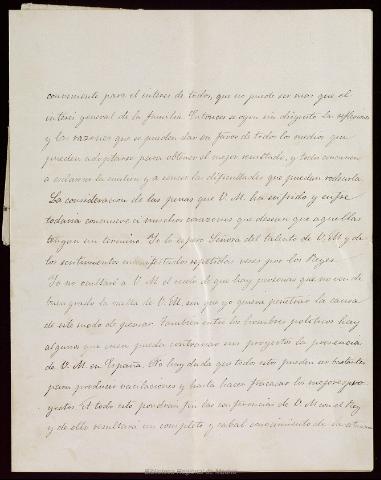 conveniente para el interes de todos, que no puede ser mas que el
interés general de la familia. Entonces se oyen sin disgusto las reflexiones
y las razones que se pueden dar en favor de todos los medios que
pueden adoptarse para obtener el mejor resultado, y todos concurren
a aclarar la cuestion y a vencer las dificultades que puedan rodearla.
La consideracion de las penas que V. M. ha sufrido y sufre
todavia conmueve a muchos corazones que desean que aquellas
tengan un termino. Yo lo espero Señora del talento de V. M. y de
los sentimientos manifestados repetidas veces por los Reyes.
Yo no ocultaré a V. M. el recelo de que hay personas que no ven de
buen grado la vuelta de V. M. sin que yo quiera penetrar la causa
de este modo de pensar. Tambien entre los hombres politicos hay
algunos que creen puede contrariar sus proyectos la presencia
de V. M. en España. No hay duda que todos estos pueden ser bastantes
para producir vacilaciones y hasta hacer fracasar los mejores proyectos.
A todo esto pondrán fin las conferencias de V. M. con el Rey
y de ello resultará un completo y cabal conocimiento de la
Biblioteca Regional de Madrid